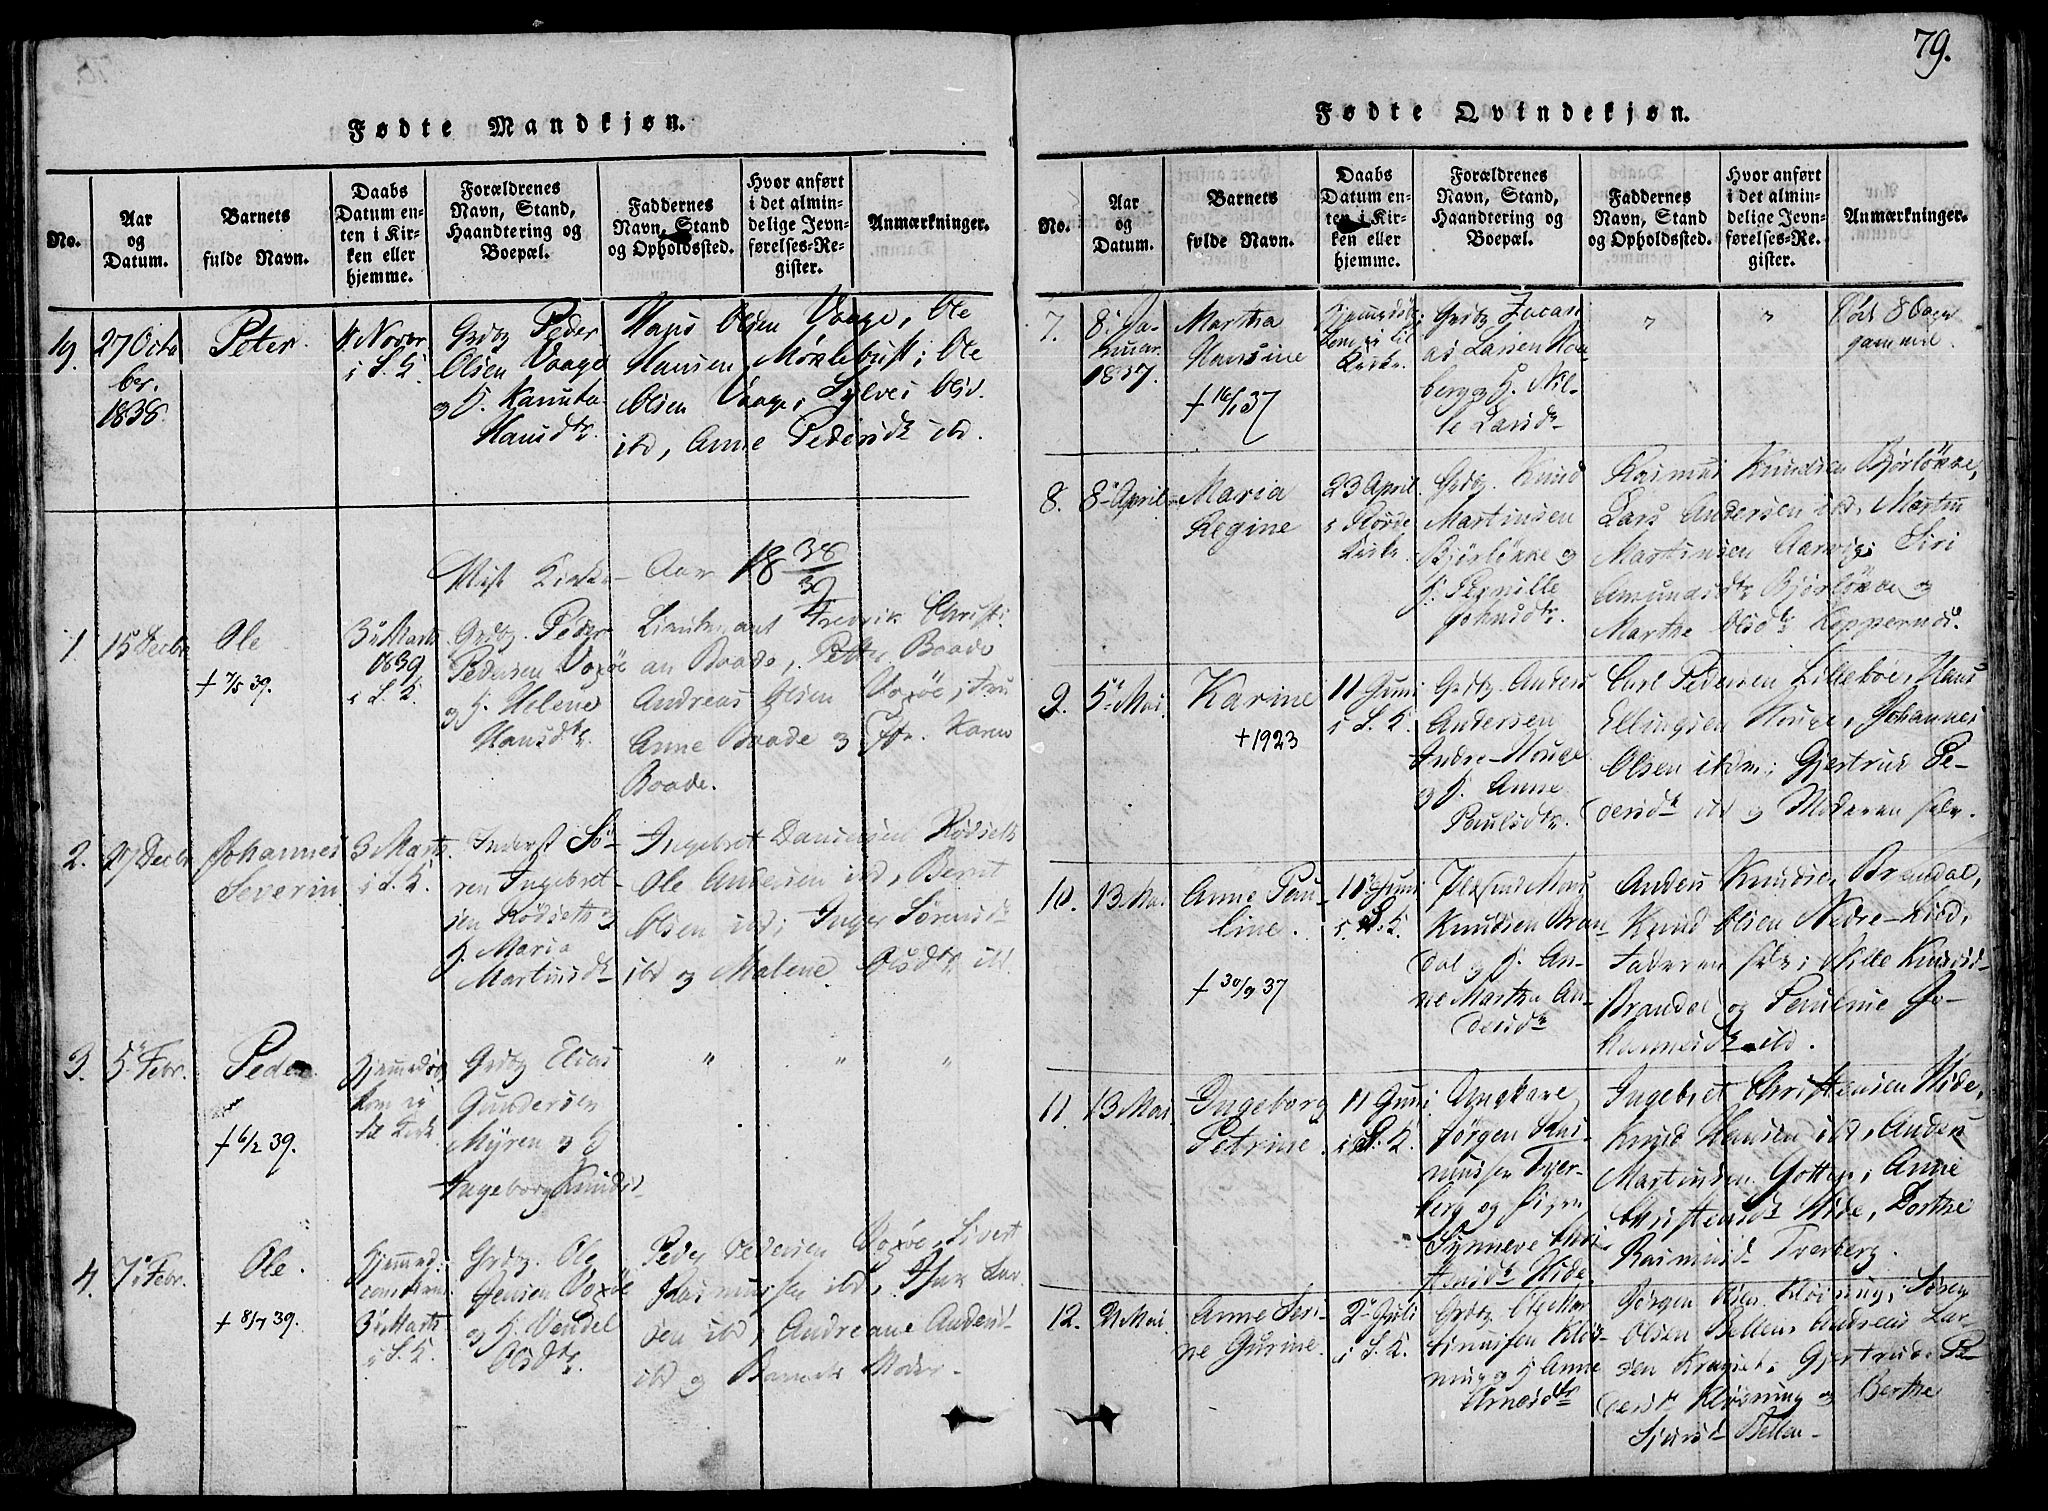 79.
Fødte Mandkjøn.
No.
Aar
og
Datum.
Barnets
fulde Navn.
Daabs
Datum en-
ten i Kir-
ken eller
hjemme.
Forældrenes
Navn, Stand,
Haandtering og
Boepæl.
Faddernes
Navn, Stand
og Opholdssted.
Hvor anført
i det almin-
delige Jevn-
førelses-Re-
gister.
Anmærkninger.
19.
27 Octo
ber.
1838.
Peter.
4 Novbr
i S. K.
Grdbg Peder
Olsen Vaage
og H. Karen
Hansdtr.
Hans Olsen Vaage, Ole
Hansen Möklebust; Ole
Olsen Vaage, Sylve Olsd.
ibd, Anne Pedersdr ibd.
Kirke-Aar 18 38/39
1.
15 Decbr
Ole
+ 7/5 39.
3 Marts
1839
i S. K.
Grdbg. Peder
Pedersen Voxöe
og H. Helene
Hansdtr.
Lieutenant Fredrik Christi
an Baade, Petter Baade
Andreas Olsen Voxöe; Fru
Anne Baade og Karen
Baade.
2.
27 Decbr
Johannes
Severin
3 Marts.
i S. K.
Inderst Sö-
ren Ingebret-
sen Rödseth og
H. Maria
Martinsdr
Ingebret Danielsen Rödseth
Ole Andersen ibd, Berit
Olsen ibd; Inger Sörensdr
ibd og Malene Olsdtr ibd.
3.
5 Febr.
Peder
+ 6/2 39.
Hjemmedöbt
kom ei
til Kirke
Grdbg Elias
Gundersen
Myren og H
Ingeborg Knudsd.
" " "
4.
7 Febr.
Ole.
+ 8/7 39.
Hjemmed.
3 Marts
i S. K.
Grdbg. Ole
Jensen Voxöe
og H. Vendel
Olsdtr.
Peder Pedersen Voxöe, Sivert
Rasmussen ibd, Isak Lar
sen ibd, Andreane Andersd.
ibd og Barnets Moder.
Fødte Qvindekjøn.
No.
Aar
og
Datum.
Barnets
fulde Navn.
Daabs
Datum en-
ten i Kir-
ken eller
hjemme.
Forældrenes
Navn, Stand,
Haandtering og
Boepæl.
Faddernes
Navn, Stand
og Opholdssted.
Hvor anført
i det almin-
delige Jevn-
førelses-Re-
gister.
Anmærkninger.
7.
8 Ja-
nuar
1837.
Martha
Hansine
+ 16/1 37
Hjemmedöbt
kom ei til
Kirke.
Grdbg Zacari
as Larsen
berg og H. Nil-
le Larsdr
" "
Död 8 Dage
gammel.
8.
8 April
Maria
Regine
23 April
i
Kirke
Grdbg. Knud
Martinsen
Björlökke og
H. Pernille
Johnsdtr.
Rasmus Knudsen Björlökke,
Lars Andersen ibd, Martin
Martinsen Aarvig; Siri
Amundsdtr Björlökke og
Marthe Olsdtr Koppernes.
9.
5 Mai.
Karine
+ 1923
11 Juni
i S. K.
Grdbg. Anders
Andersen
Indre-Houge
og H. Anne
Paulsdtr.
Carl Pedersen Lilleböe, Hans
Ellingsen Houge, Johannes
Olsen ibdm; Gjertrud Pe-
dersdr ibd og Moderen selv.
10.
13 Mai
Anne Pau-
line.
+ 30/9 37
11 Juni
i S. K.
Knudsen Bran-
dal og H. An-
ne Martha An-
dersdr
Anders Knudsen Brandal,
Knud Olsen Nedre-Liöd,
Faderen selv; Nille Knudsd
Brandal og Pauline Jo-
hannesdr ibd.
11.
13 Mai
Ingeborg
Petrine.
11 Juni
i S. K.
Ungkarl
Jörgen Ras-
mussen Tver-
berg og Pigen
Synneve Chri
stensdr Hide
Ingebret Christensen Hide,
Knud Hansen ibd, Anders
Martinsen Anne
Christensdr Hide, Dorthe
Rasmusd. Tverberg.
12.
21 Mai
Anne Seri-
ne Gurine.
2 Juli
i S. K.
Grdbg Ole Mar
tinusen Klöv-
ning og H Anne
Arnesdtr
Jörgen Olsen Klövning, Sören
Olsen Bellen, Andreas Lar
sen Gjertrud Pe-
dersdr Klövning og Berthe
Sjursd Bellen.